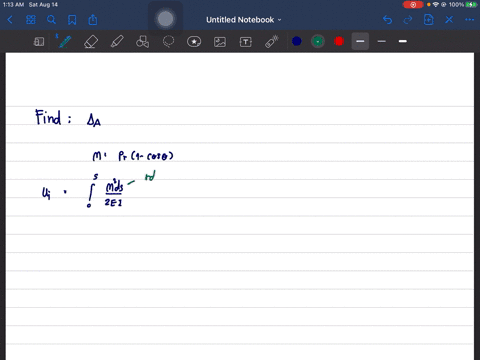 1:13 AM Sat Aug 14
100%
Untitled Notebook
Find : ΔA
M = Pr (1 - cosθ)
Ui = ∫₀ˢ M²ds / 2EI
rd